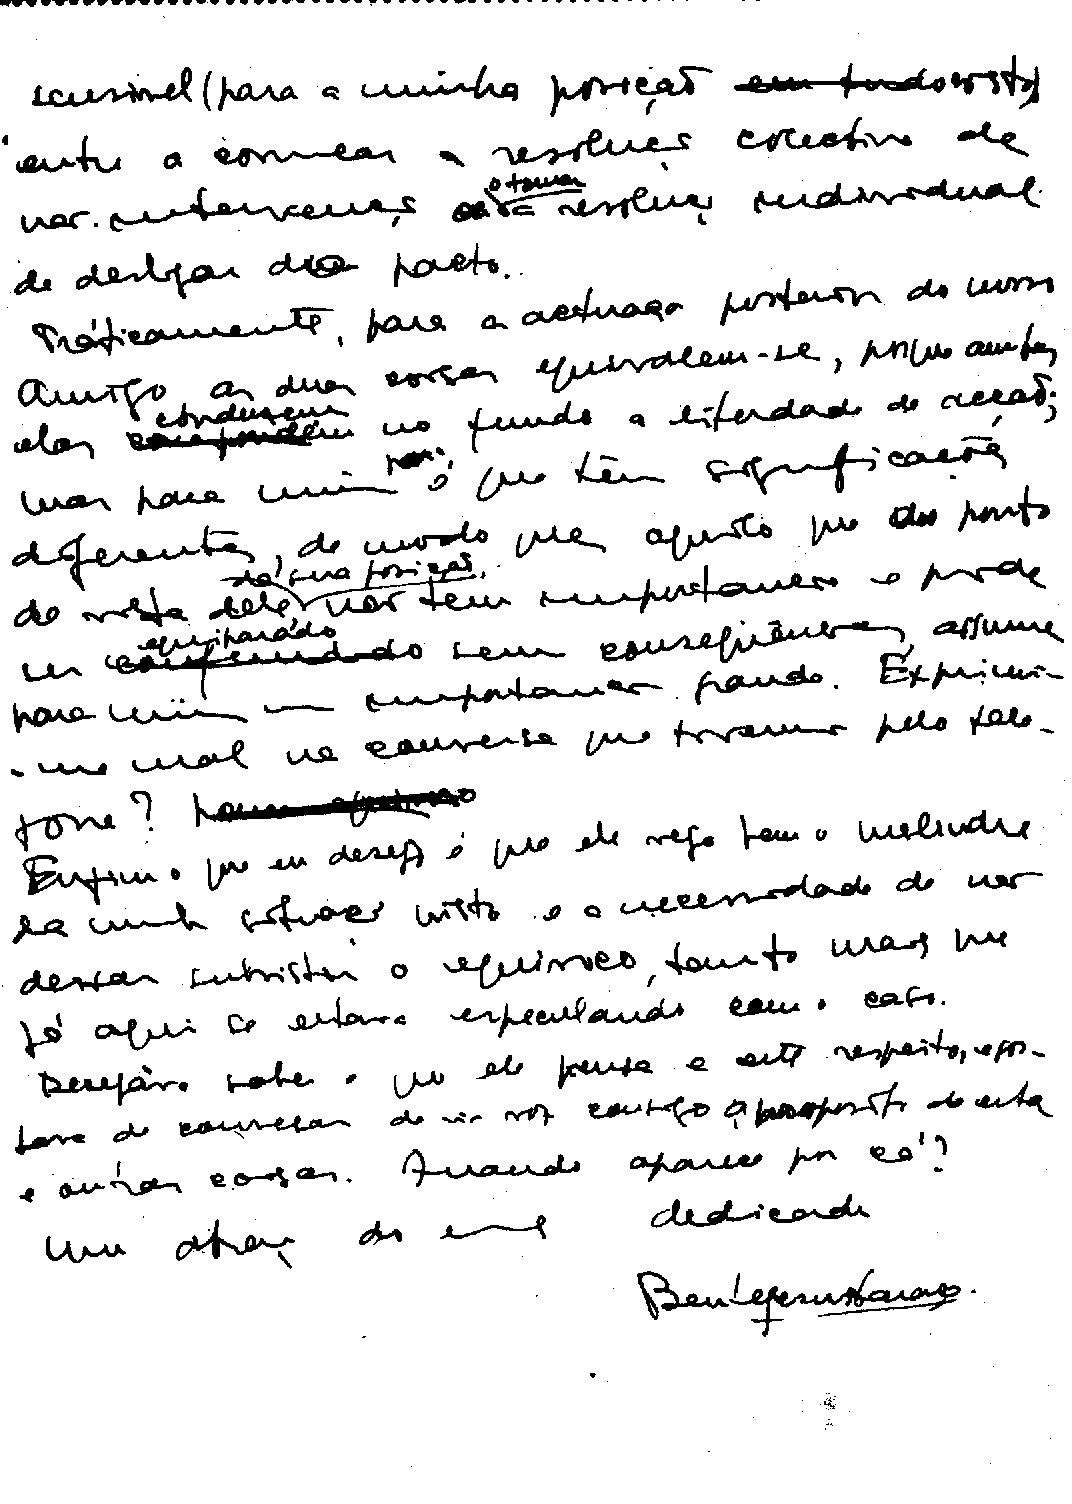 (para a minha posição em tudo isto)
entre a começar a resolução colectiva de
não intervenção o tomar a resolução individual
de desligar do pacto.
Práticamente, para a actuação posterior do nosso
Amigo as duas coisas equivalem-se, porque ambas
elas conduzem no fundo a liberdade de acção;
mas para mim é que têm significações
diferentes, de modo que aquilo que do ponto
de vista da sua posição, não tem importancia e pode
ser equiparado sem consequências, assume
para mim uma importancia grande. Exprimi-
-me mal na conversa que tivemos pelo tele-
fone?
Enfim o que eu desejo é que ele veja bem o melindre
da minha situação nisto e a necessidade de não
deixar subsistir o equivoco, tanto mais que
já aqui se estava especulando com o caso.
Desejava saber o que ele pensa a este respeito, e gos-
tava de conversar de viva voz comtigo a proposito de esta
e outras coisas. Quando aparece por cá?
Um abraço do seu dedicado
Bento de Jesus Caraça.